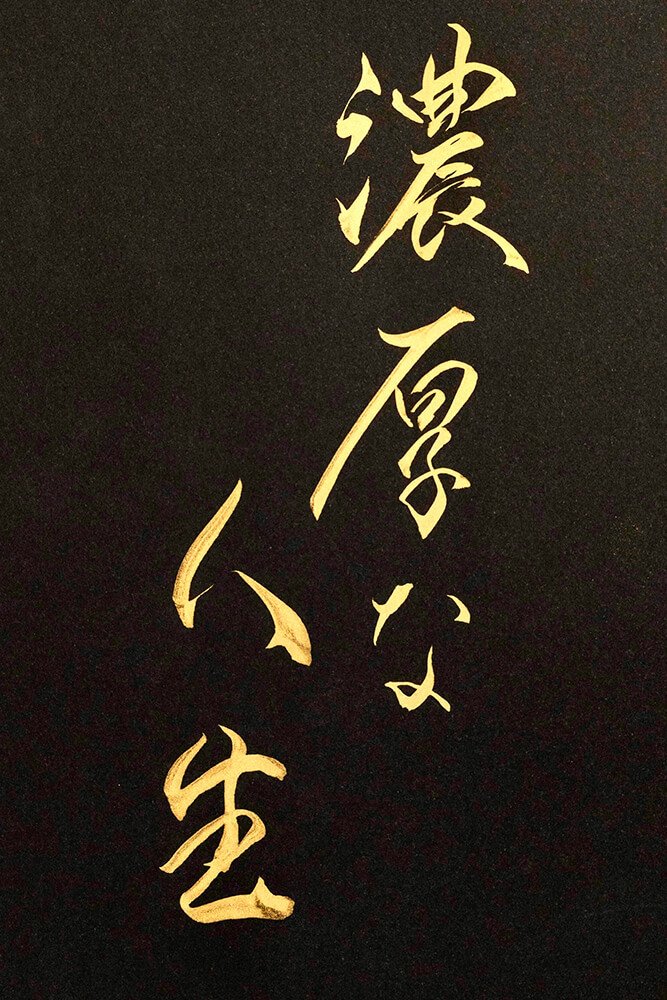 濃厚な
人生